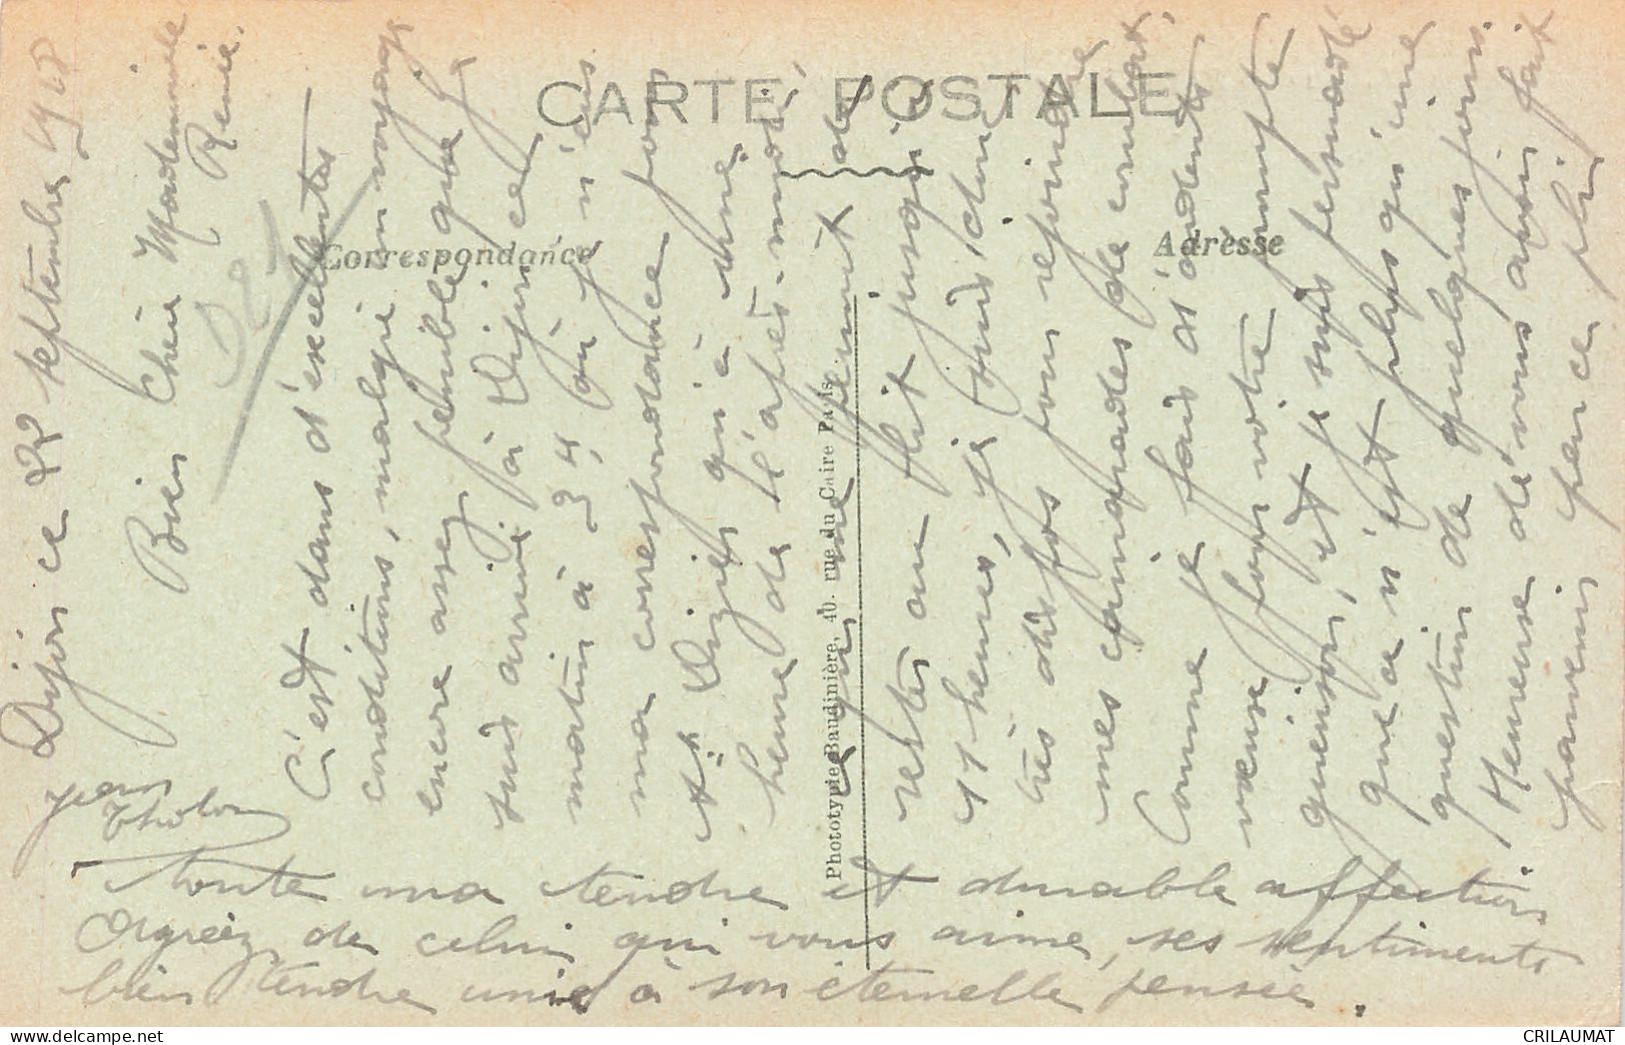 CARTE POSTALE
Correspondance
Adresse
Phototypie Baudinière, 40. rue du Caire Paris
Dijon ce 22 septembre 1918
Bien Chère Mademoiselle
Renée.
C'est dans d'excellentes
conditions, malgré un voyage
encore assez pénible que je
suis arrivé à Dijon ce
matin à 3 4, où je n'eus
ma correspondance pour
St Dizier qu'à une
heure de l'après-midi
ce qui me permit de
rester au lit jusqu'à
11 heures, je suis
très dispos pour rejoindre
mes camarades de combat.
Comme je fais d'ardents
voeux pour votre prompte
guérison, et je suis persuadé
que ce n'est plus qu'une
question de quelques jours
Heureuse de vous avoir fait
parvenir peu ce pli
toute ma tendre et durable affection
Agréez de celui qui vous aime, ses sentiments
bien tendre unie à son éternelle pensée.
Jean
Tholon
CRILAUMAT